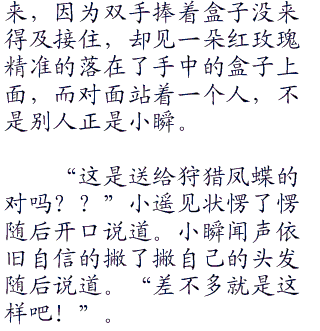 来，因为双手捧着盒子没来
得及接住，却见一朵红玫瑰
精准的落在了手中的盒子上
面，而对面站着一个人，不
是别人正是小瞬。
“这是送给狩猎凤蝶的
对吗？？”小遥见状愣了愣
随后开口说道。小瞬闻声依
旧自信的撇了撇自己的头发
随后说道。“差不多就是这
样吧！”。